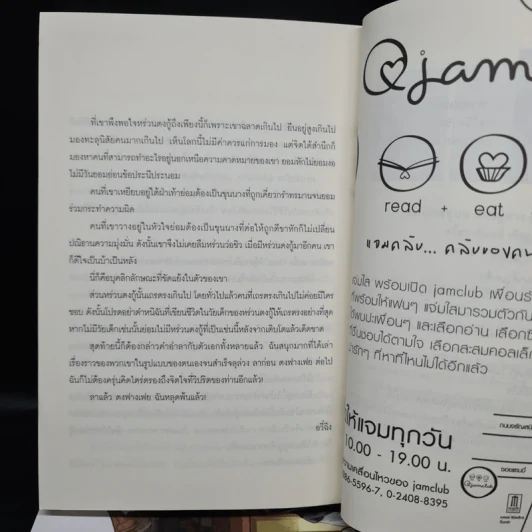 ที่เขาพึงพอใจหร่วนตงกู้ถึงเพียงนี้ก็เพราะเขาฉลาดเกินไป ยืนอยู่สูงเกินไป
มองทะลุนิสัยคนมากเกินไป เห็นโลกนี้ไม่มีค่าควรแก่การมอง แต่จิตใต้สำนึกก็
มองหาคนที่สามารถทำอะไรอยู่นอกเหนือความคาดหมายของเขา ยอมหักไม่ยอมงอ
ไม่มีวันยอมอ่อนข้อประนีประนอม
คนที่เขาเหยียบอยู่ใต้ฝ่าเท้าย่อมต้องเป็นขุนนางที่ถูกเคี่ยวกรำทรมานจนยอม
ร่วมกระทำความผิด
คนที่เขาวางอยู่ในหัวใจย่อมต้องเป็นขุนนางที่ต่อให้ถูกตีขาหักก็ไม่เปลี่ยน
ปณิธานความมุ่งมั่น ดังนั้นเขาจึงไม่เคยลืมหร่วนว่อชิว เมื่อมีหร่วนตงกู้มาอีกคน เขา
ก็ดีใจเป็นบ้าเป็นหลัง
นี่ก็คือบุคลิกลักษณะที่ขัดแย้งในตัวของเขา
ส่วนหร่วนตงกู้นั้นเถรตรงเกินไป โดยทั่วไปแล้วคนที่เถรตรงเกินไปไม่ค่อยมีใคร
ชอบ ดังนั้นโปรดอย่าตำหนิฉันที่เขียนชีวิตในวัยเด็กของหร่วนตงกู้ให้เถรตรงอย่างที่สุด
หากไม่มีวัยเด็กเช่นนั้นย่อมไม่มีหร่วนตงกู้ที่เป็นเช่นนี้หลังจากเติบโตแล้วเด็ดขาด
สุดท้ายนี้ก็ต้องกล่าวคำอำลากับตัวเอกทั้งหลายแล้ว ฉันสนุกมากที่ได้เล่า
เรื่องราวของพวกเขาในรูปแบบของตนเองจนสำเร็จลุล่วง ลาก่อน ตงฟางเฟย ต่อไป
ฉันก็ไม่ต้องครุ่นคิดไตร่ตรองถึงจิตใจที่วิปริตของท่านอีกแล้ว!
ลาแล้ว ตงฟางเฟย ฉันหลุดพ้นแล้ว!
อวี๋ฉิง
jam
read + eat
แจมคลับ... คลับของคน
แจ่มใส พร้อมเปิด jamclub เพื่อนรั
ที่พร้อมให้แฟนๆ แจ่มใสมารวมตัวกัน
ใช้พบปะเพื่อนๆ และเลือกอ่าน เลือกซื
ที่ชื่นชอบได้ตามใจ เลือกสะสมคอลเล็ก
น่ารักๆ ที่หาที่ไหนไม่ได้อีกแล้ว
ให้แจมทุกวัน
10.00 - 19.00 น.
ความเคลื่อนไหวของ jamclub
86-5596-7, 0-2408-8395